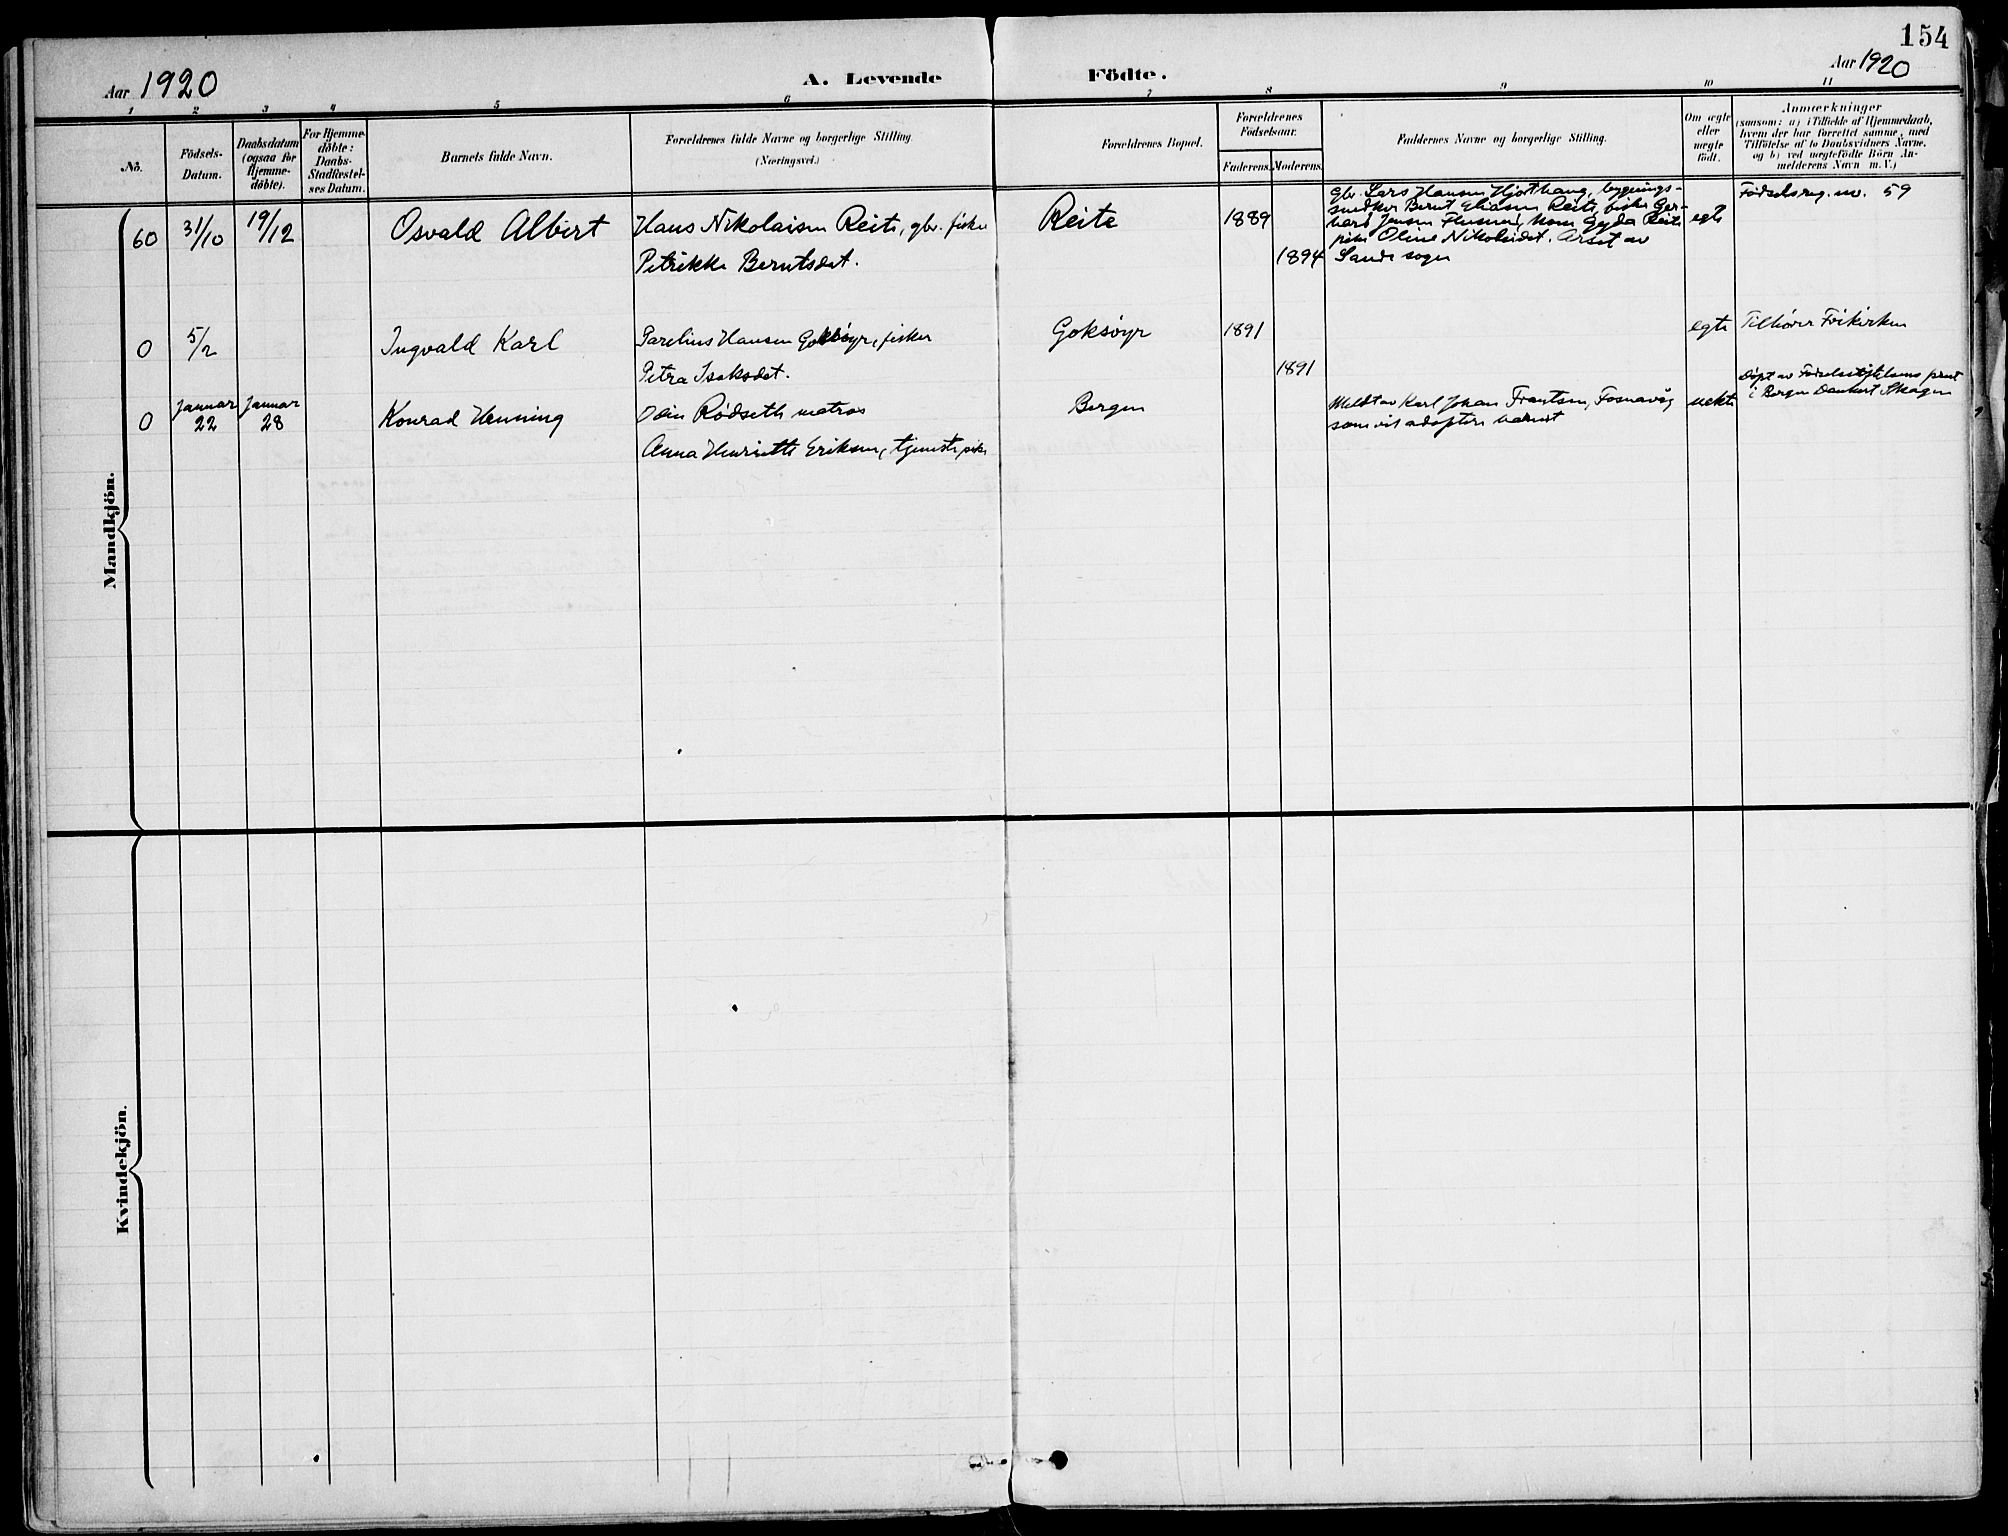 154
Aar 1920
A. Levende Födte.
Aar 1920
1 2 3 4 5 6 7 8 9 10 11
No.
Födsels-
Datum.
Daabsdatum
(ogsaa for
Hjemme-
döbte).
For Hjemme-
döbte:
Daabs-
Stadfæstel-
ses Datum.
Barnets fulde Navn.
Forældrenes fulde Navne og borgerlige Stilling.
(Næringsvei.)
Forældrenes Bopæl.
Forældrenes
Födselsaar.
Faderens. Moderens.
Faddernes Navne og borgerlige Stilling.
Om ægte
eller
uægte
födt.
Anmærkninger
(saasom: a) i Tilfælde af Hjemmedaab,
hvem der har forrettet samme, med
Tilföielse af to Daabsvidners Navne,
og b) ved uægtefödte Börn An-
melderens Navn m. V.)
Mandkjön.
60 31/10 19/12 Osvald Albert
Hans Nikolaisen Reite, gbr. fisker
Petrikke Berntsdat.
Reite 1889
1894
gbr. Lars Hansen Hjorthaug, bygnings-
snedker Bernt Eliasen Reite, fisker Ger-
hard Jensen, kone Gyda Reite
pike Oline Nikolaidat. Arset av
Sande sogn
egte
Fødselsreg. nr. 59
0 5/2 Ingvald Karl
Parelius Hansen Goksøyr, fisker
Petra Isaksdat.
Goksöyr 1891
1891
egte Tilhører Frikirken
0 Januar 22 Januar 28 Konrad Henning
Odin Rødseth matros
Anna Henriette Eriksen, tjenestepike
Bergen
Meldt av Karl Johan Frantsen, Fosnavåg
som vil adoptere barnet
uekte
Döpt av Fødselsstiftelsens prest
i Bergen Dankert Skagen
Kvindekjön.